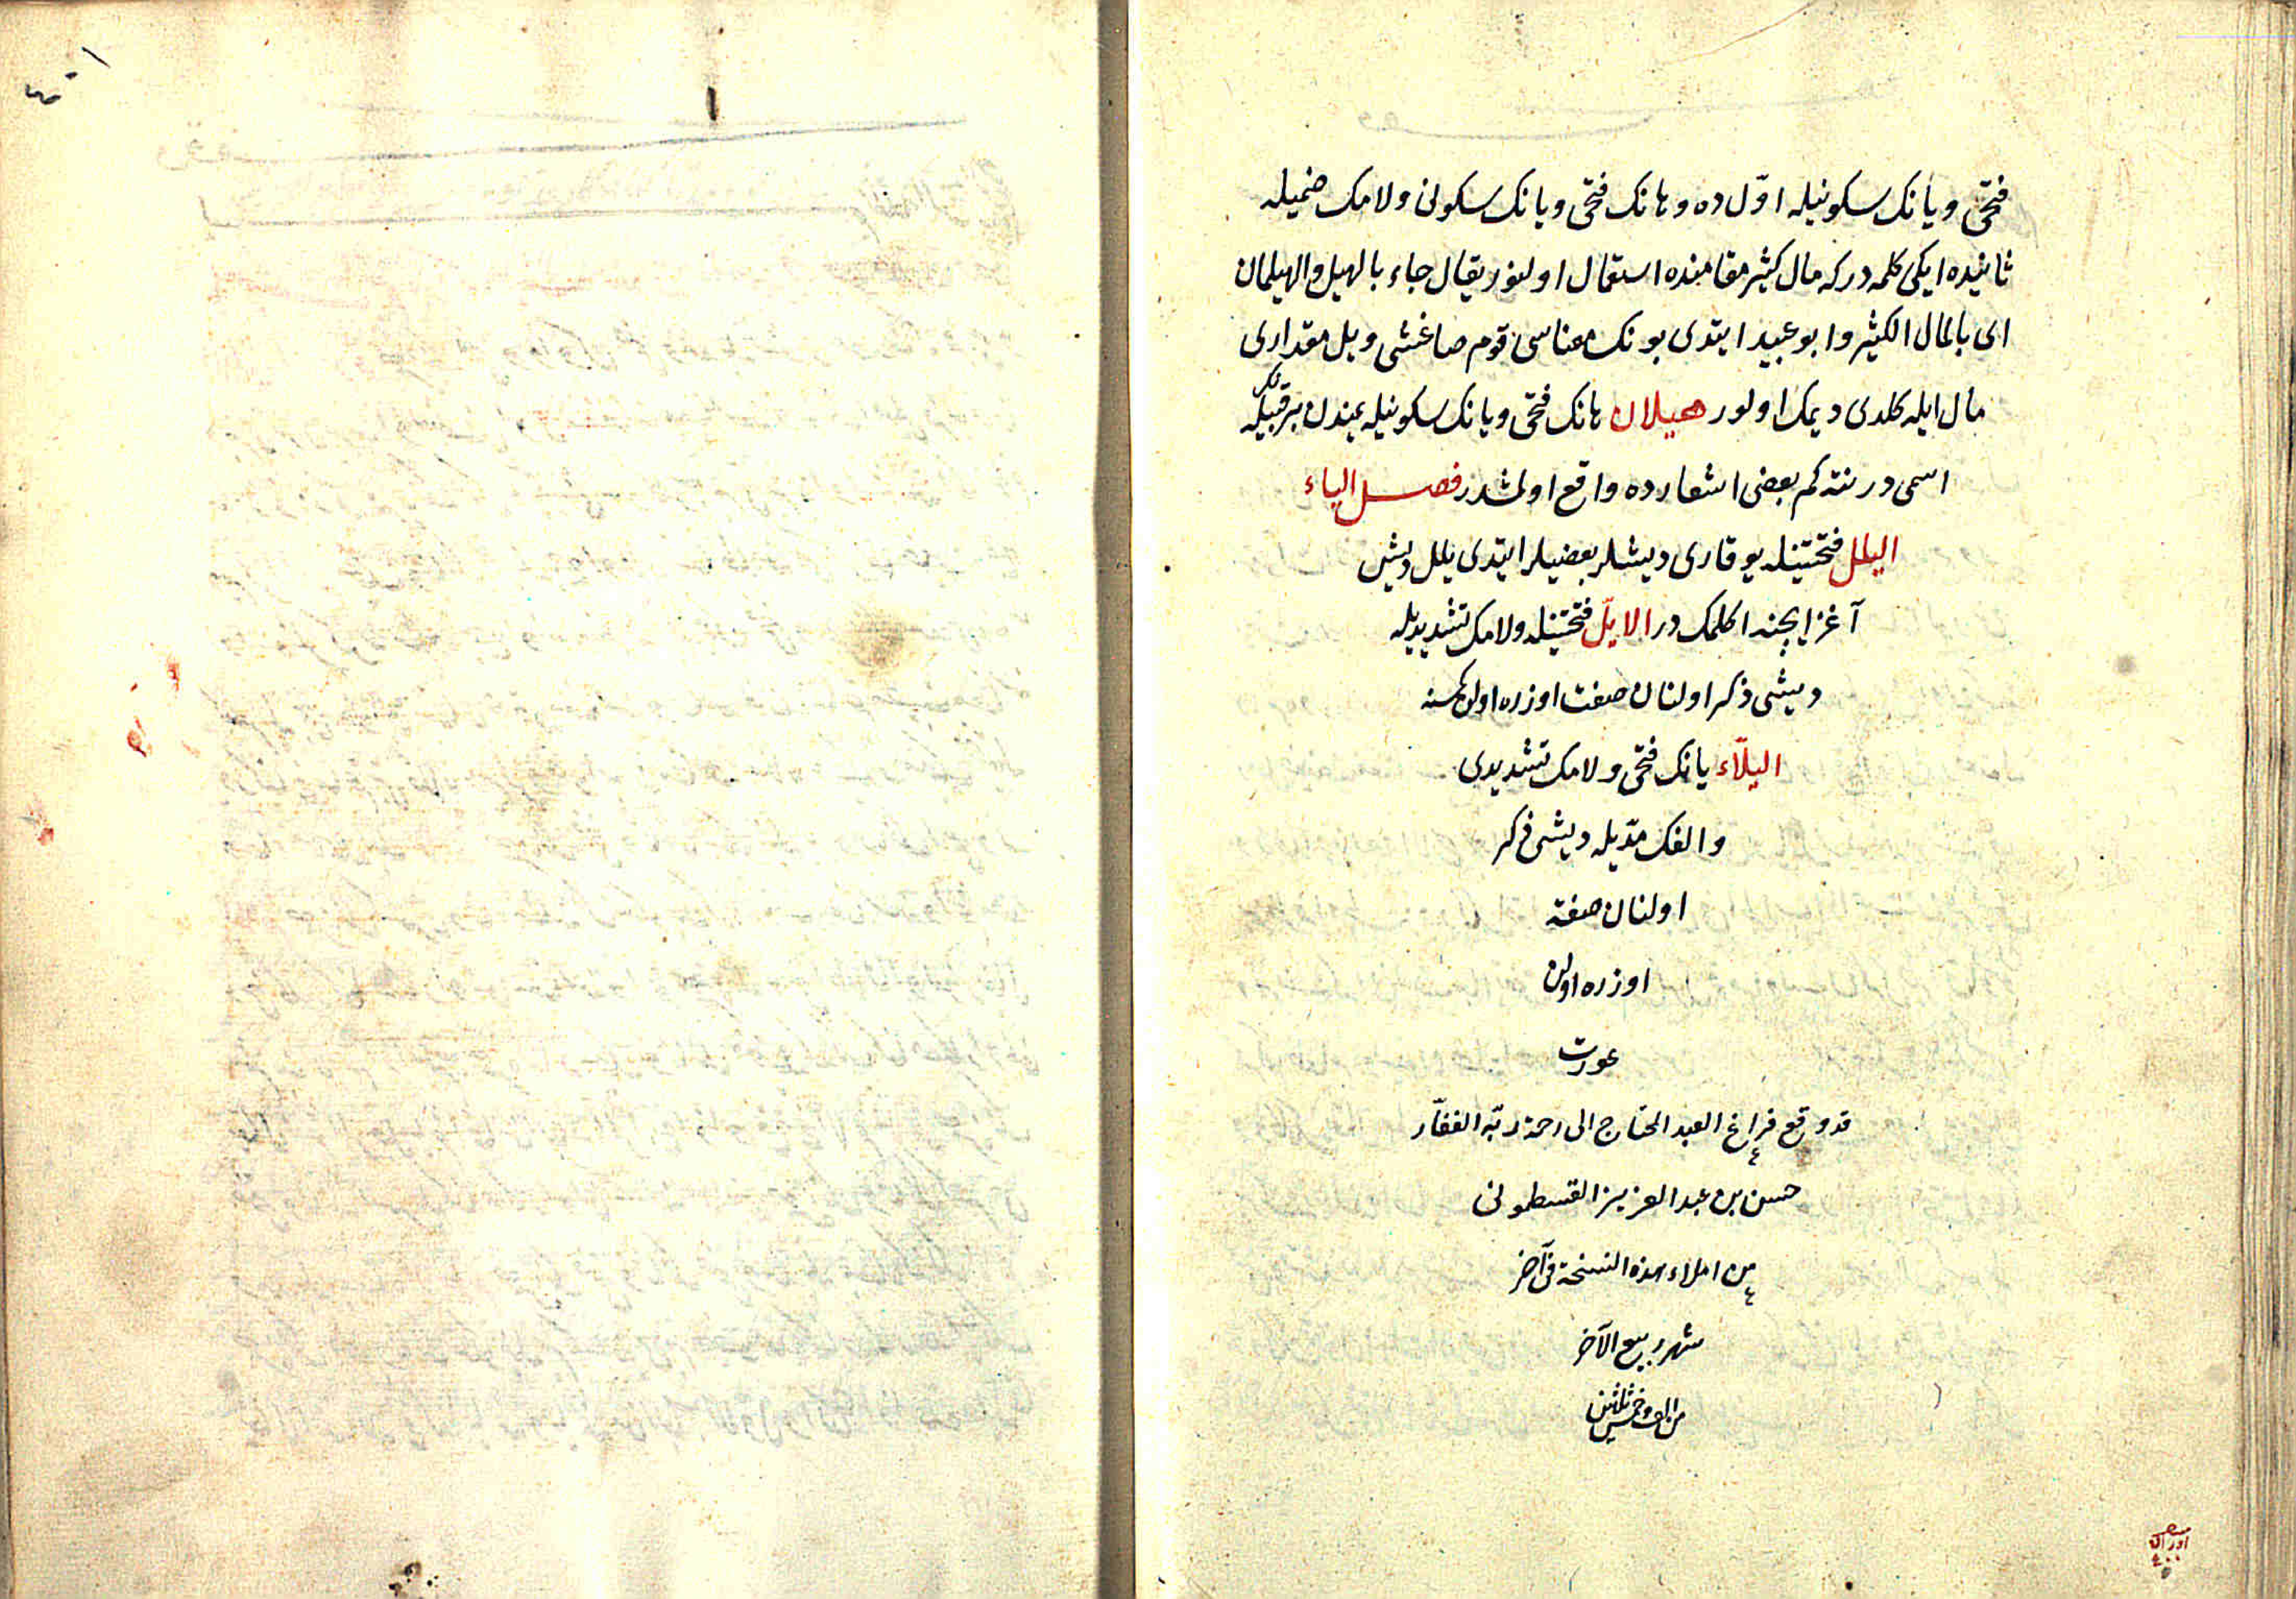 فتحی و یانک سکونیله اوّل ده و هانک فتحی و یانک سکونی و لامک ضمیله
ثانیده ایکی کلمه در که مال کثیر مقامنده استعمال اولنور یقال جاء بالهیل والهیلمان
ای بالمال الکثیر و ابو عبید ایتدی بونک معناسی قوم صاغشی و یل مقداری
مال ایله کلدی دیمک اولور هیلان هانک فتحی و یانک سکونیله یمندن بر قبیله نک
اسمی در نته کم بعض اشعارده واقع اولمشدر فصل الیاء
الیلل فتحتینله یوقاری دیشلر بعضیلر ایتدی یلل دیش
آغز ایچنه اکلمک در الایلّ فتحتینله و لامک تشدیدیله
دیشی ذکر اولنان صفت اوزره اولن کمسنه
الیلّاء یانک فتحی و لامک تشدیدی
و الفک مدّیله دیشی ذکر
اولنان صفته
اوزره اولن
عورت
قد وقع فراغ العبد المحتاج الی رحمة ربّه الغفّار
حسن بن عبد العزیز القسطمونی
من املاء هذه النسخة فی آخر
شهر ربیع الآخر
اوراق
٤٠٠
١